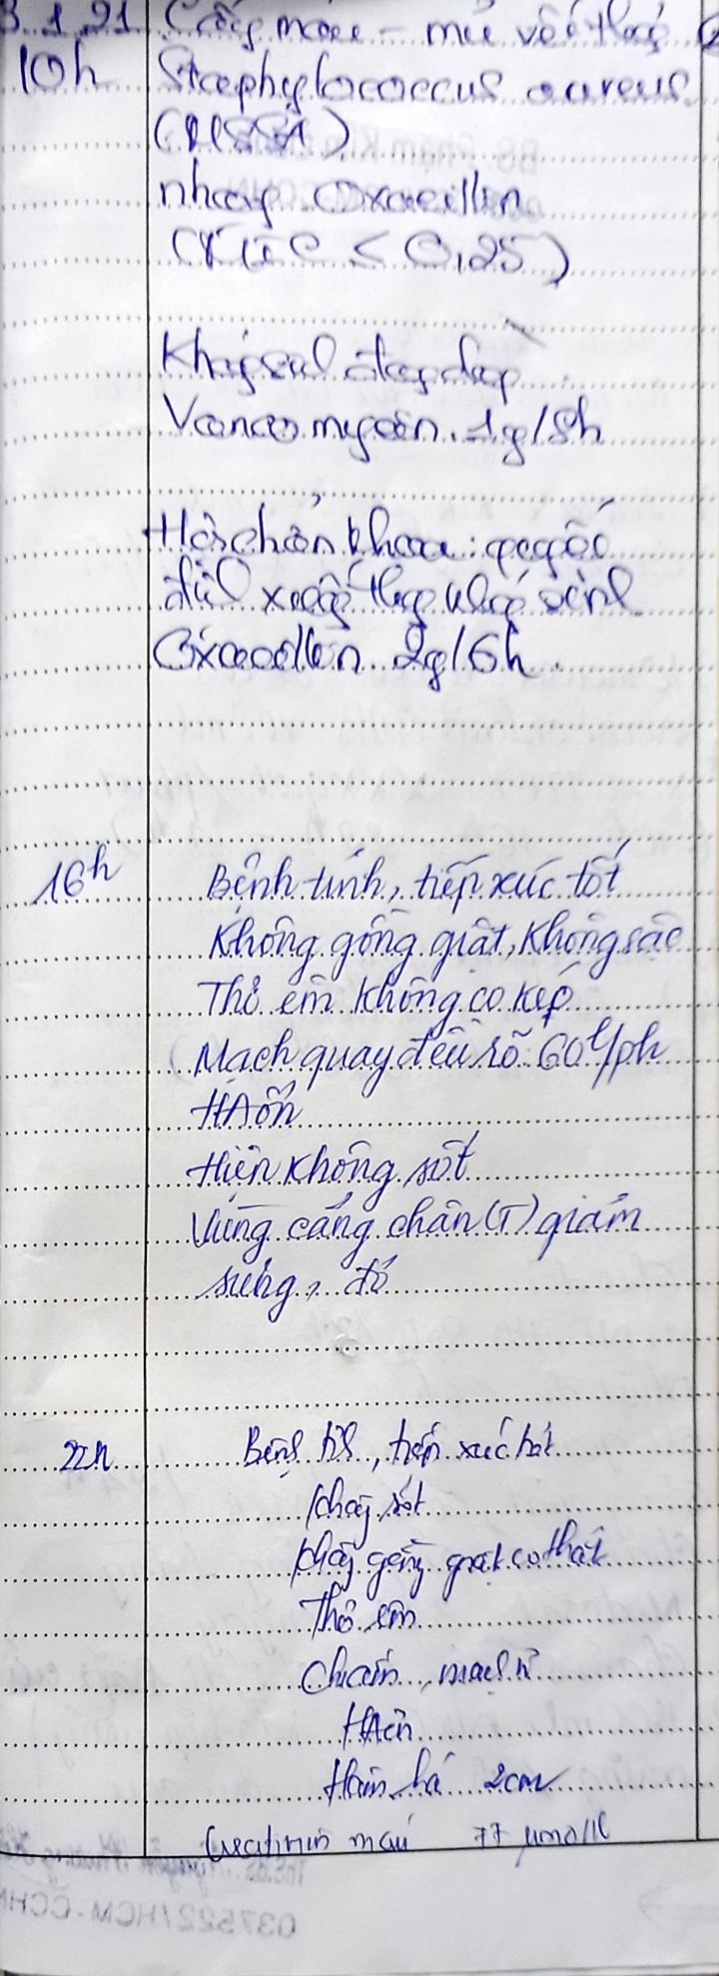 3.1.21 Cấy máu - mủ vết thg
10h Staphylococcus aureus
(MSSA)
nhạy Oxacillin
(MIC ≤ 0,25)
Kháng sinh đang dùng
Vancomycin 1g/8h
Hội chẩn khoa:
đề xuất kháng sinh
Oxacillin 2g/6h.
16h Bệnh tỉnh, tiếp xúc tốt
Không gồng giật, không sặc
Thở êm không co kéo
Mạch quay đều rõ 60 l/ph
HA ổn
Hiện không sốt
Vùng cẳng chân (T) giảm
sưng, đỏ
22h Bệnh tỉnh, tiếp xúc tốt
không sốt
không gồng giật co thắt
Thở êm
Chi ấm, mạch rõ
HA ổn
Há 2cm
Creatinin máu 77 µmol/l
037522/HCM-CCHN